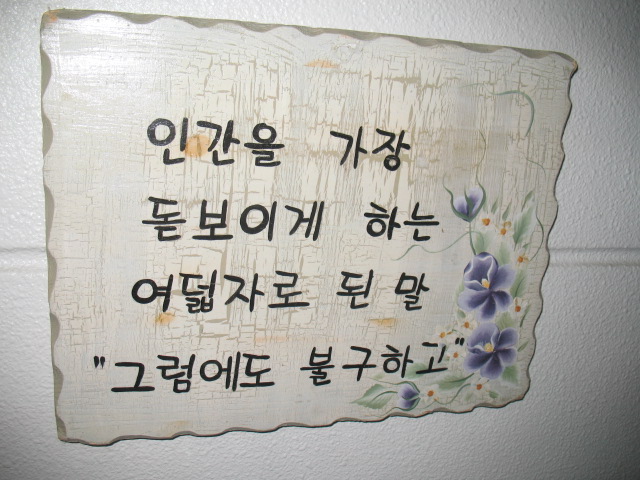 인간을 가장
돋보이게 하는
여덟자로 된 말
"그럼에도 불구하고"